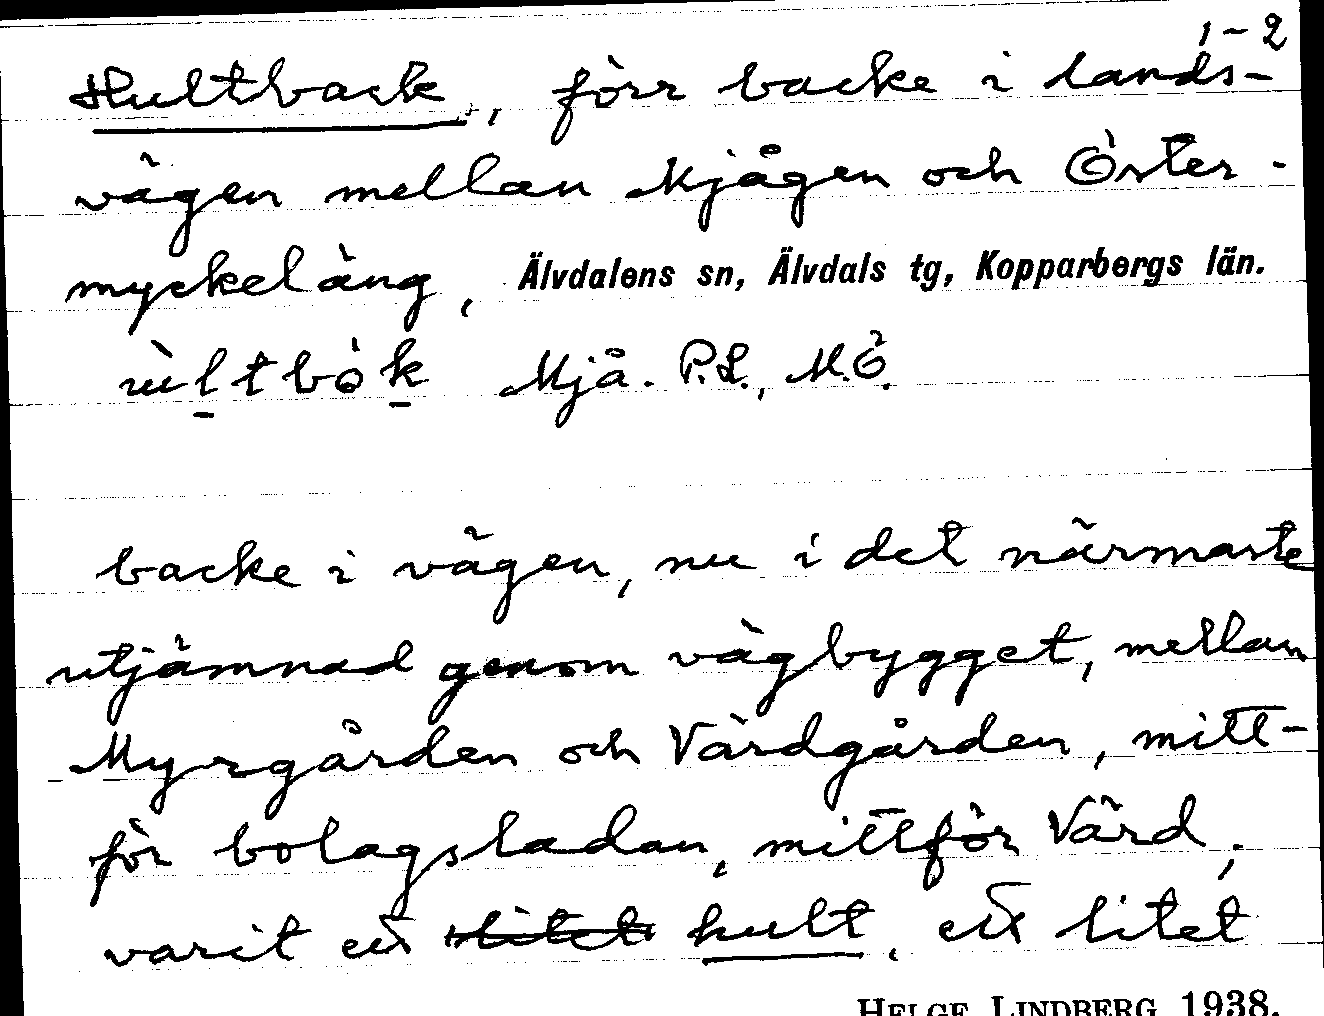 1-2
Hultback, förr backe i lands-
vägen mellan Mjågen och Öster-
myckeläng, Älvdalens sn, Älvdals tg, Kopparbergs län.
ùltbòk Mjå. P.L., M.Ö.
backe i vägen, nu i det närmaste
utjämnad genom vägbygget, mellan
Myrgården och Värdgården, mitt-
för bolagsladan, mittför Värd;
varit ett litet hult, ett litet
HELGE LINDBERG 1938.